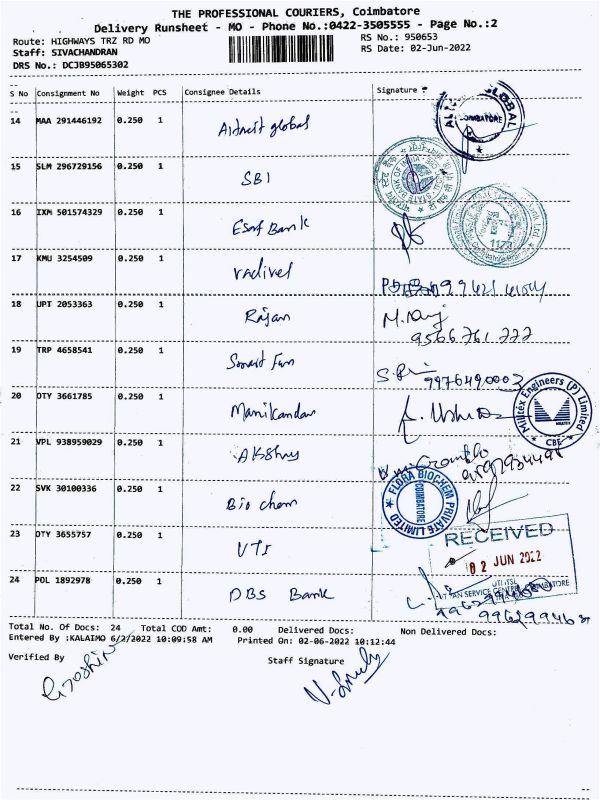 THE PROFESSIONAL COURIERS, Coimbatore
Delivery Runsheet - MO - Phone No.:0422-3505555 - Page No.:2
Route: HIGHWAYS TRZ RD MO
RS No.: 950653
Staff: SIVACHANDRAN
RS Date: 02-Jun-2022
DRS No.: DCJB95065302
S No Consignment No Weight PCS Consignee Details Signature
14 MAA 291446192 0.250 1 global
15 SLM 296729156 0.250 1 SBI
16 IXM 501574329 0.250 1 Esaf Bank
17 KMU 3254509 0.250 1 Vadivel
18 UPT 2053363 0.250 1 Rajan
9566761222
19 TRP 4658541 0.250 1 Smart Fun
9976490003
20 OTY 3661785 0.250 1 Manikandan
21 VPL 938959029 0.250 1 Akshay
22 SVK 30100336 0.250 1 Bio chem
23 OTY 3655757 0.250 1 UTI
24 POL 1892978 0.250 1 DBS Bank
GLOBAL
COIMBATORE
STATE BANK OF INDIA
Milltex Engineers (P) Limited
MILLTEX
CBE
FLORA BIOCHEM PRIVATE LIMITED
COIMBATORE
RECEIVED
02 JUN 2022
PAN SERVICE CENTRE COIMBATORE
Total No. Of Docs: 24 Total COD Amt: 0.00 Delivered Docs: Non Delivered Docs:
Entered By :KALAIMO 6/2/2022 10:09:58 AM Printed On: 02-06-2022 10:12:44
Verified By Staff Signature